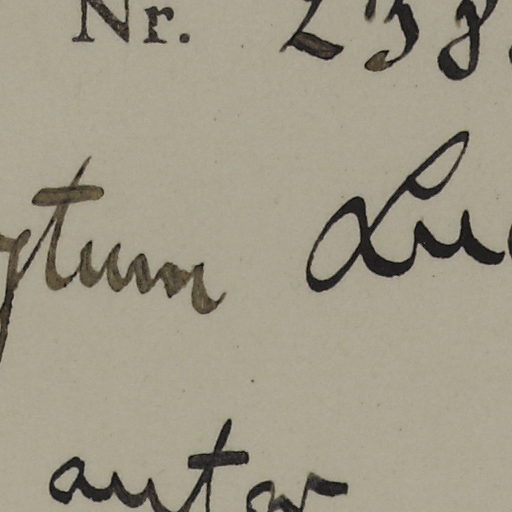 Nr. 238
ytum Lu
autor